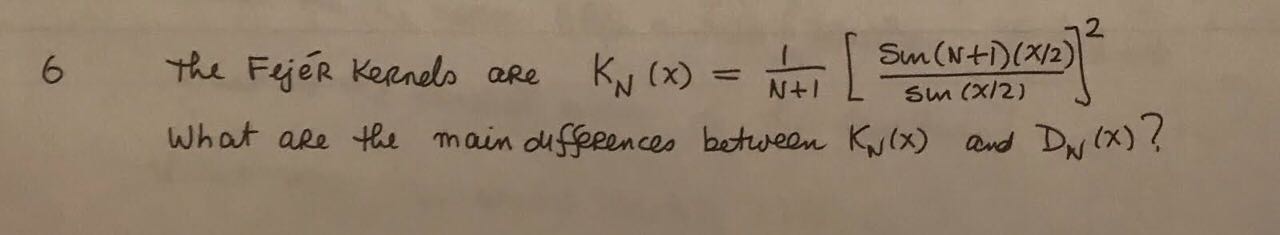 6 The Fejér Kernels are K_N(x) = 1/(N+1) [ sin(N+1)(x/2) / sin(x/2) ]^2
What are the main differences between K_N(x) and D_N(x)?